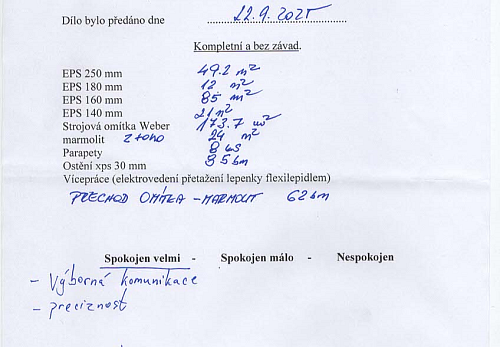 Dílo bylo předáno dne 22.9.2025
Kompletní a bez závad.
EPS 250 mm 49.2 m²
EPS 180 mm 12 m²
EPS 160 mm 85 m²
EPS 140 mm 21 m²
Strojová omítka Weber 173.7 m²
marmolit z toho 24 m²
Parapety 8 ks
Ostění xps 30 mm 85 bm
Vícepráce (elektrovedení přetažení lepenky flexilepidlem)
PŘECHOD OMÍTKA - MARMOLIT 62 bm
Spokojen velmi - Spokojen málo - Nespokojen
- Výborná komunikace
- preciznost